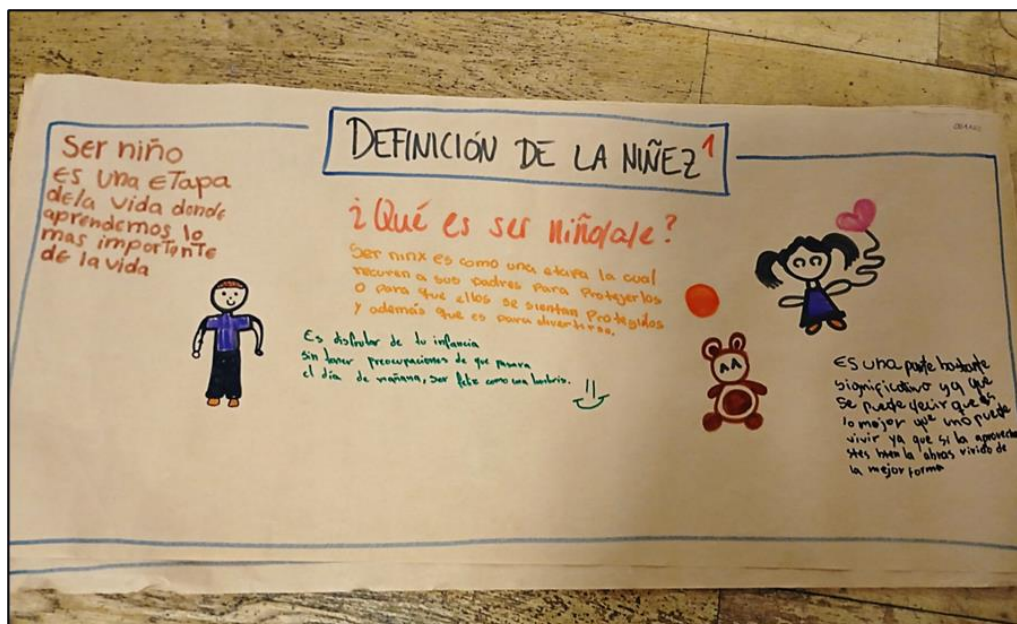 DEFINICIÓN DE LA NIÑEZ 1
Ser niño
ES UNA ETapa
dela vida donde
aprendemos lo
mas importante
de la vida
¿Qué es ser niño/a/e?
Ser ninx es como una etapa la cual
recuren a sus padres para Protejerlos
o para que ellos se sientan Protegidos
y además que es para divertirse.
Es disfrutar de tu infancia
sin tener preocupaciones de que pasara
el día de mañana, ser feliz como una lombriz.
ES una parte bastante
significativo ya que
se puede decir que es
lo mejor que uno puede
vivir ya que si la aprovecha
stes bien la abras vivido de
la mejor forma